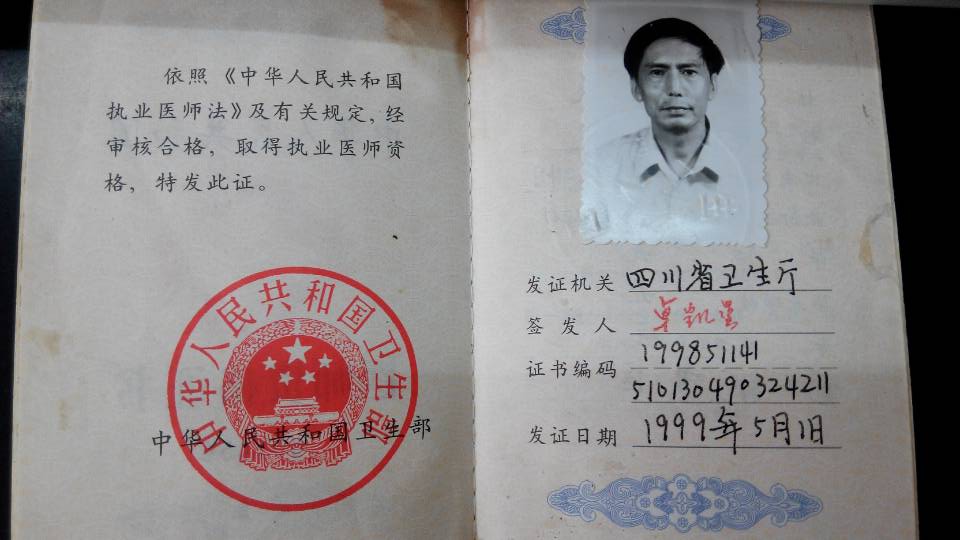 依照《中华人民共和国
执业医师法》及有关规定，经
审核合格，取得执业医师资
格，特发此证。
中华人民共和国卫生部
中华人民共和国卫生部
发证机关 四川省卫生厅
签发人 卓凯星
证书编码 199851141
510130490324211
发证日期 1999年5月1日